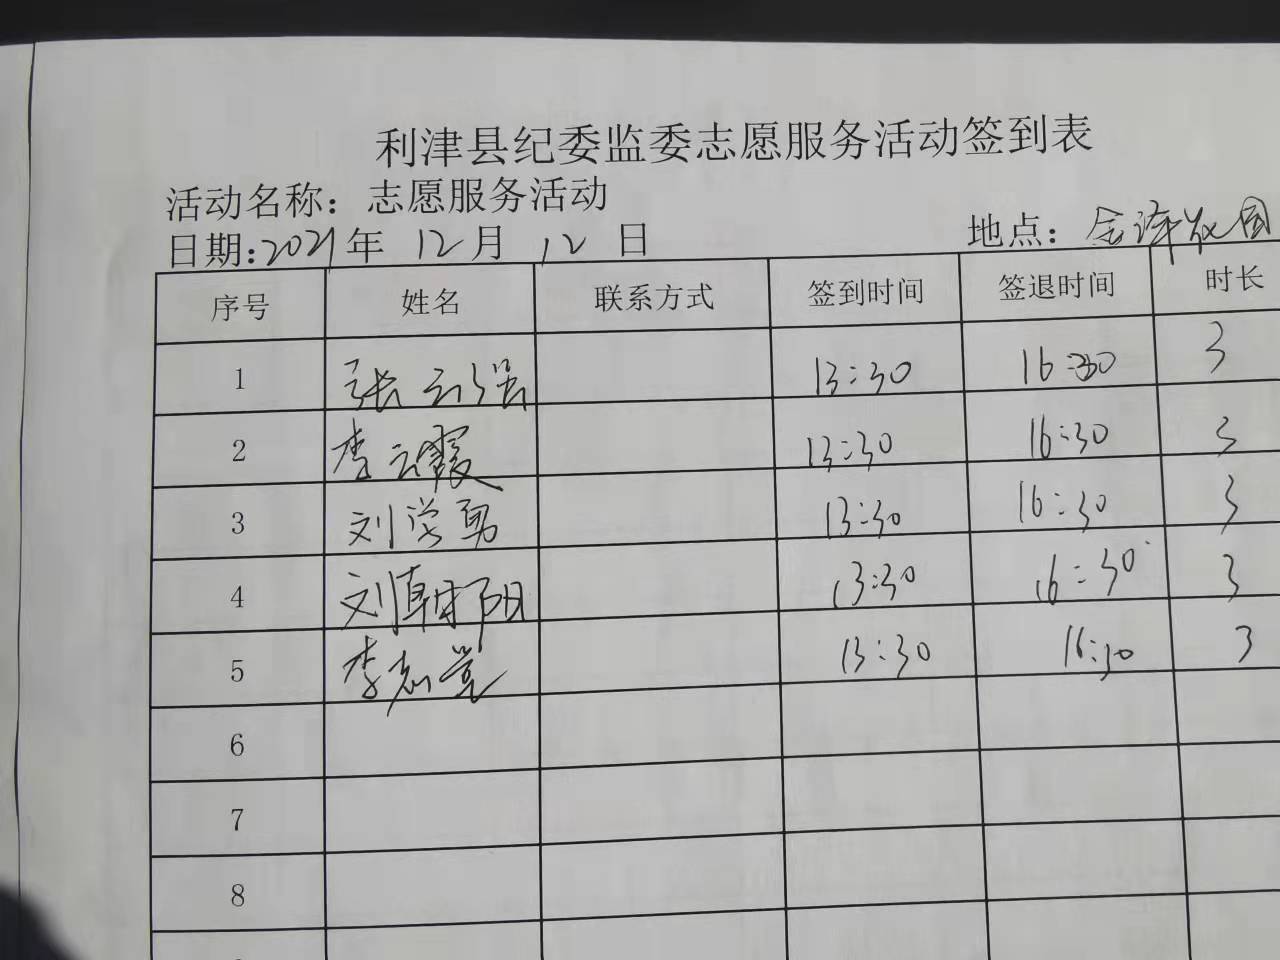 利津县纪委监委志愿服务活动签到表
活动名称：志愿服务活动
日期:2021年 12月 12日 地点：
序号 姓名 联系方式 签到时间 签退时间 时长
1 张云强 13:30 16:30 3
2 李云霞 13:30 16:30 3
3 刘学勇 13:30 16:30 3
4 刘朝阳 13:30 16:30 3
5 李志堂 13:30 16:30 3
6
7
8